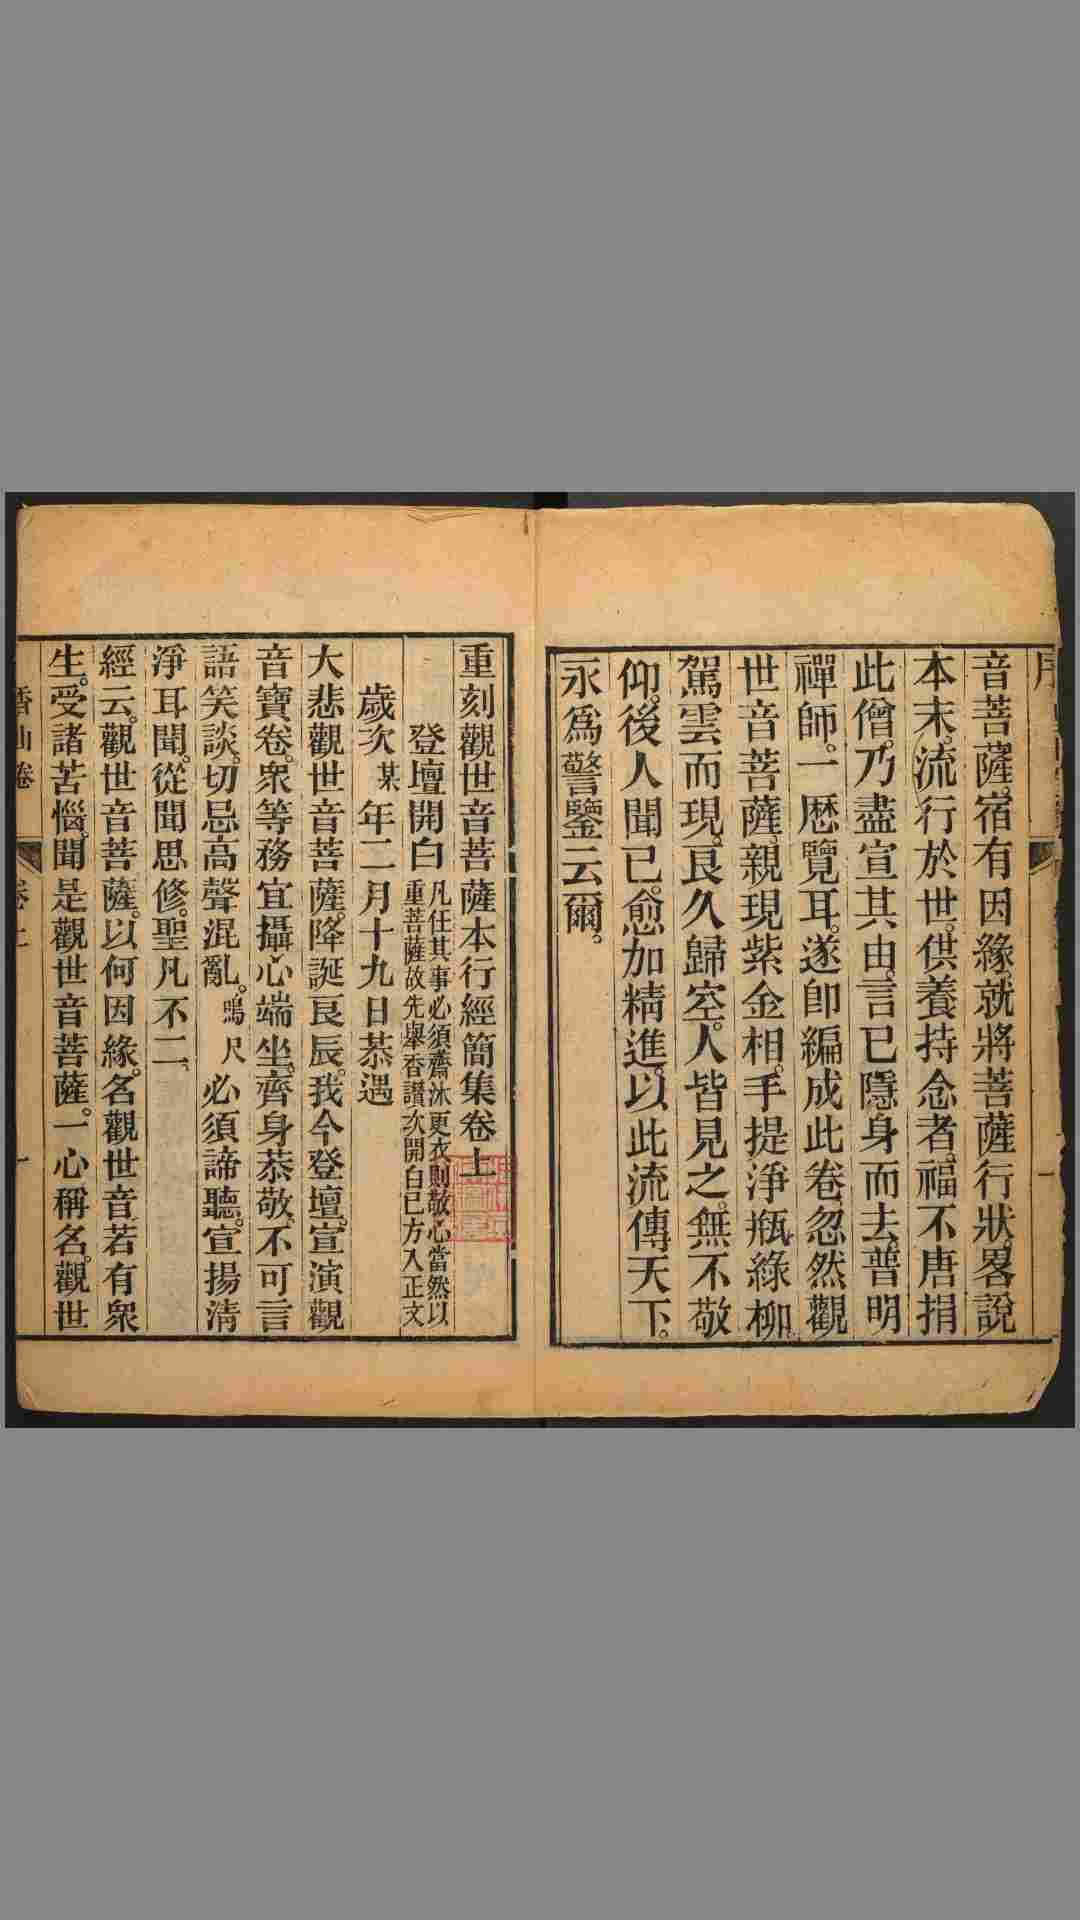 音菩薩。宿有因緣。就將菩薩行狀。畧說
本末。流行於世。供養持念者。福不唐捐
此僧。乃盡宣其由。言已隱身而去。普明
禪師。一歷覽耳。遂卽編成此卷。忽然觀
世音菩薩。親現紫金相。手提淨瓶綠柳。
駕雲而現。良久歸空。人皆見之。無不敬
仰。後人聞已。愈加精進。以此流傳天下。
永爲警鑒云爾。
重刻觀世音菩薩本行經簡集卷上
登壇開白 凡任其事必須齋沐更衣則敬心當然以
重菩薩故先舉香讚次開白已方入正文
歲次某年二月十九日恭遇
大悲觀世音菩薩。降誕良辰。我今登壇。宣演觀
音寶卷。衆等務宜攝心端坐。齊身恭敬。不可言
語笑談。切忌高聲混亂。鳴尺 必須諦聽。宣揚清
淨耳聞。從聞思修。聖凡不二。
經云。觀世音菩薩。以何因緣。名觀世音。若有衆
生。受諸苦惱。聞是觀世音菩薩。一心稱名。觀世
香山卷 卷上 一